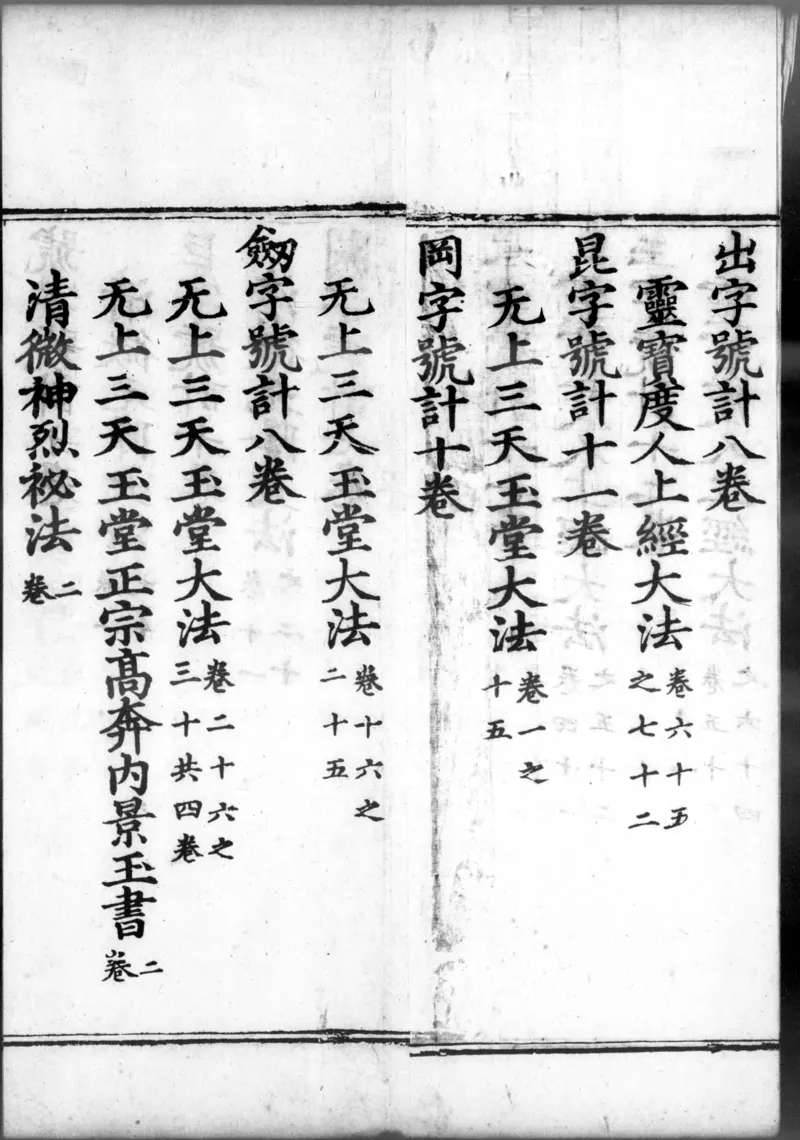 出字號計八卷
靈寶度人上經大法 卷六十五之七十二
昆字號計十一卷
无上三天玉堂大法 卷一之十五
岡字號計十卷
无上三天玉堂大法 卷十六之二十五
劔字號計八卷
无上三天玉堂大法 卷二十六之三十共四卷
无上三天玉堂正宗高奔內景玉書 二卷
清微神烈祕法 二卷